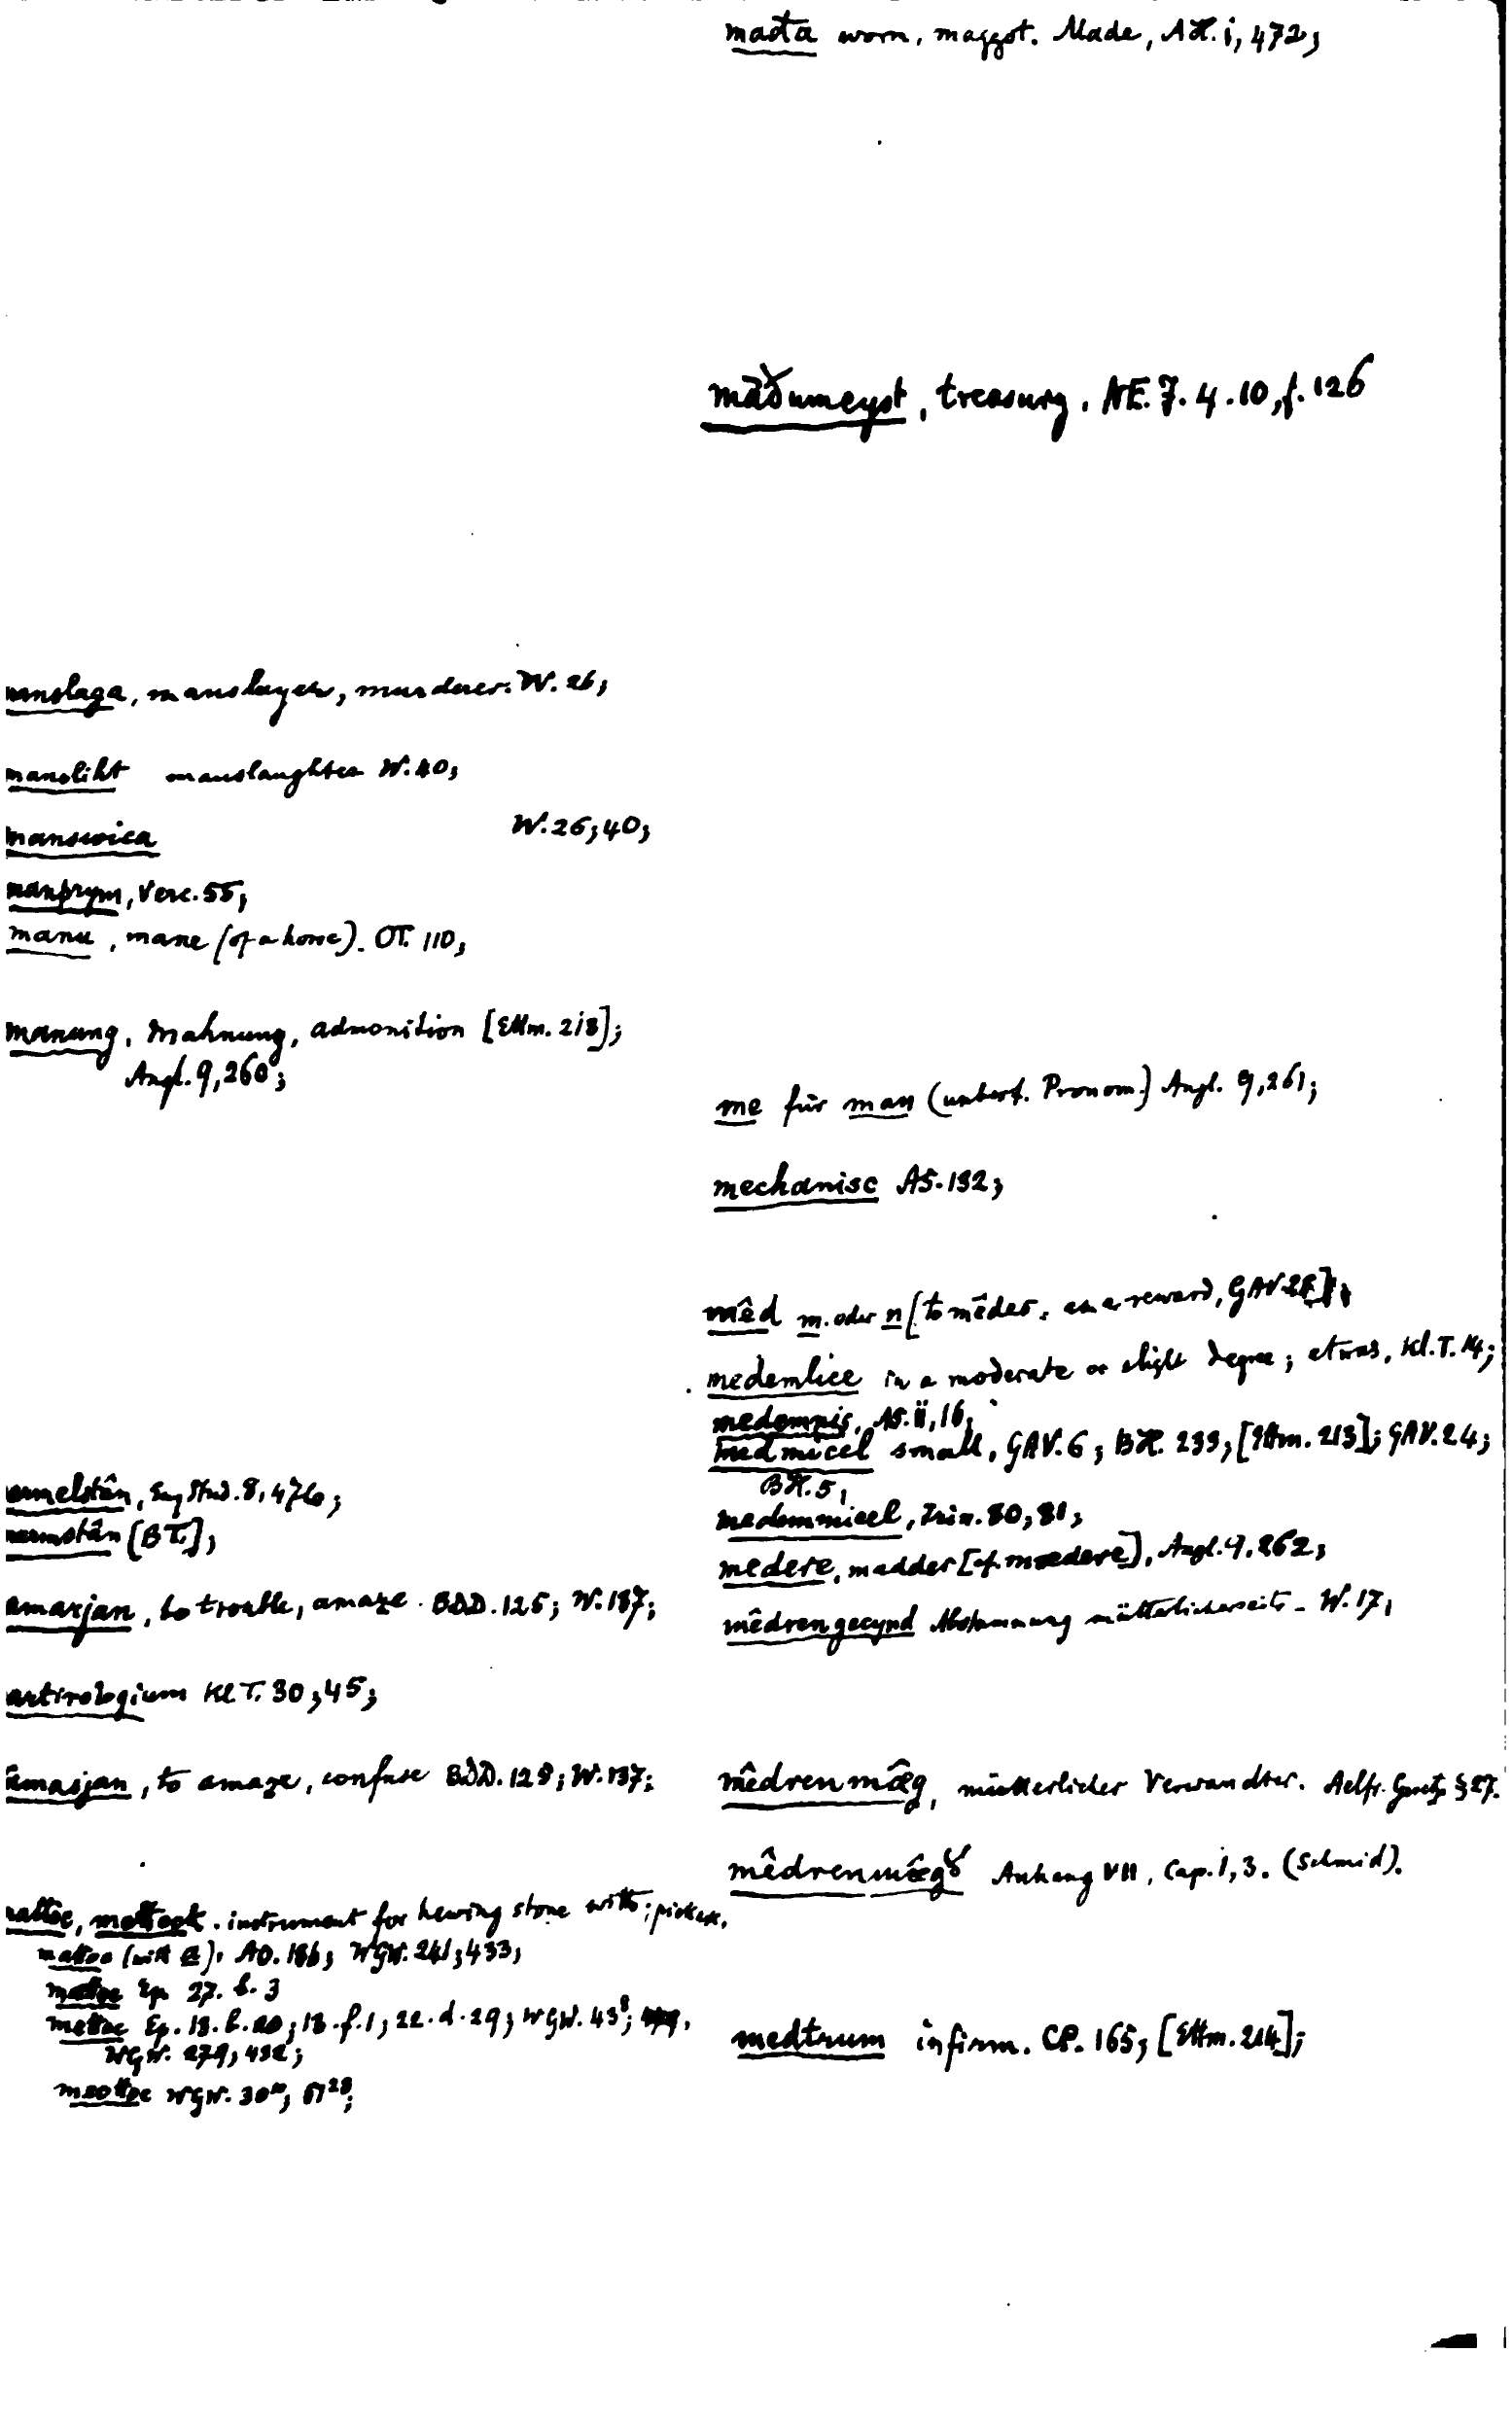 manslaga, manslayer, murderer. W. 26;
mansliht manslaughter W. 40;
manswica W. 26; 40;
manþrym, Verc. 55;
manu, mane (of a horse). OT. 110;
manung, Mahnung, admonition [Ettm. 218];
Angl. 9, 260;
armelstân, Eng Stud. 8, 476;
armstân [BT.];
amarjan, to trouble, amaze. BDD. 125; W. 137;
artirologium Kl. T. 30; 45;
âmasjan, to amaze, confuse BDD. 128; W. 137;
mattoc, mattock. instrument for hewing stone with; pickax,
mattoc (with a), AO. 186; WgW. 241; 433;
Ep. 27. b. 3
mettoc Ep. 13. b. 20; 13. f. 1; 22. d. 29; WgW. 43⁸;
WgW. 279; 432;
meottoc WgW. 30; 51²⁸;
mađa worm, maggot. Made, AH. i, 472;
māðumcyst, treasury. AE. 7. 4. 10, f. 126
me für man (unbest. Pronom.) Angl. 9, 261;
mechanisc AS. 132;
mêd m. oder n [to mēdes, as a reward, GAV. 28];
medemlice in a moderate or slight degree; etwas, Kl. T. 14;
medomnis, AS. ii, 16;
medmicel small, GAV. 6; BH. 239; [Ettm. 213]; GAV. 24;
BH. 5;
medommicel, Trin. 80, 81;
medere, madder [cf. mædere], Angl. 9, 262;
mêdrengecynd Abstammung mütterlicherseits - W. 17;
mêdrenmæ̂g, mütterlicher Verwandter. Aelfr. Gesetz § 27.
mêdrenmæ̂gð Anhang VII, Cap. 1, 3. (Schmid).
medtrum infirm. CP. 165; [Ettm. 214];